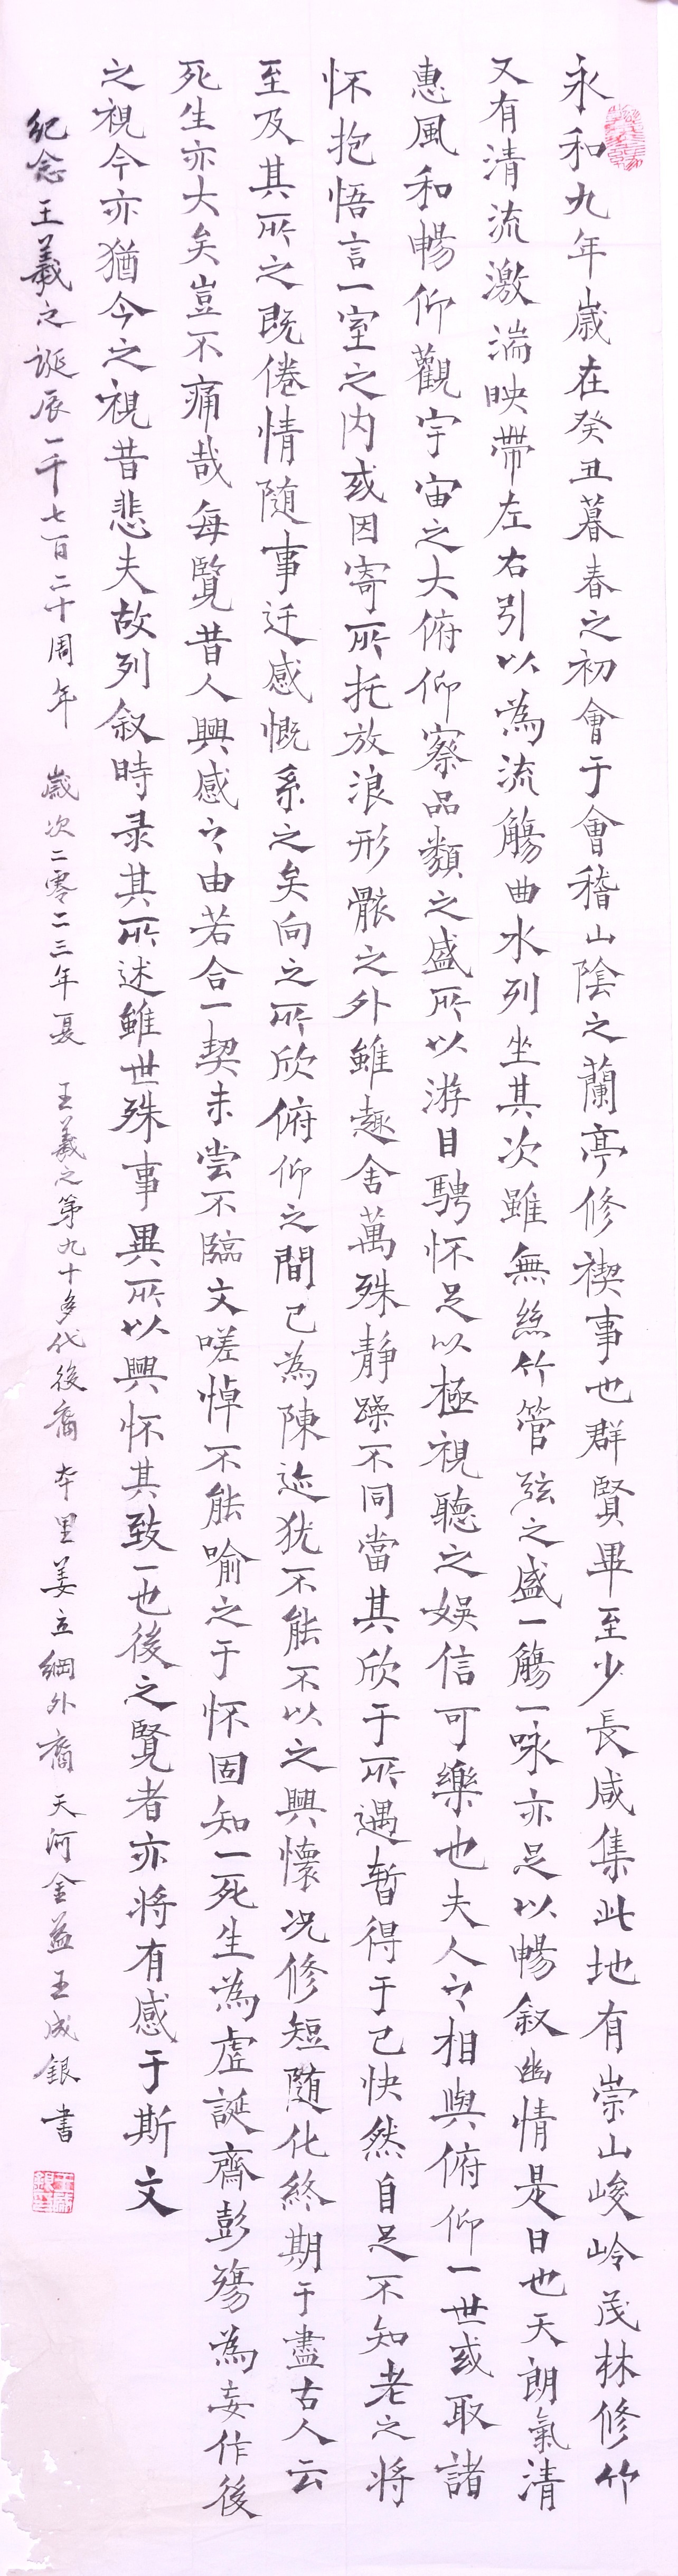 永和九年歲在癸丑暮春之初會于會稽山陰之蘭亭修禊事也群賢畢至少長咸集此地有崇山峻岭茂林修竹
又有清流激湍映帶左右引以為流觴曲水列坐其次雖無絲竹管弦之盛一觴一咏亦足以暢叙幽情是日也天朗氣清
惠風和暢仰觀宇宙之大俯仰察品類之盛所以游目騁怀足以極視聽之娛信可樂也夫人之相與俯仰一世或取諸
怀抱悟言一室之内或因寄所托放浪形骸之外雖趣舍萬殊静躁不同當其欣于所遇暫得于己快然自足不知老之将
至及其所之既倦情随事迁感慨系之矣向之所欣俯仰之間已為陳迹犹不能不以之興懷况修短隨化終期于盡古人云
死生亦大矣豈不痛哉每覽昔人興感之由若合一契未尝不臨文嗟悼不能喻之于怀固知一死生為虚誕齊彭殤為妄作後
之視今亦猶今之視昔悲夫故列叙時录其所述雖世殊事異所以興怀其致一也後之覽者亦将有感于斯文
紀念王羲之誕辰一千七百二十周年 歲次二零二三年夏 王羲之第九十多代後裔 本里姜立綱外裔 天河金益王成銀書